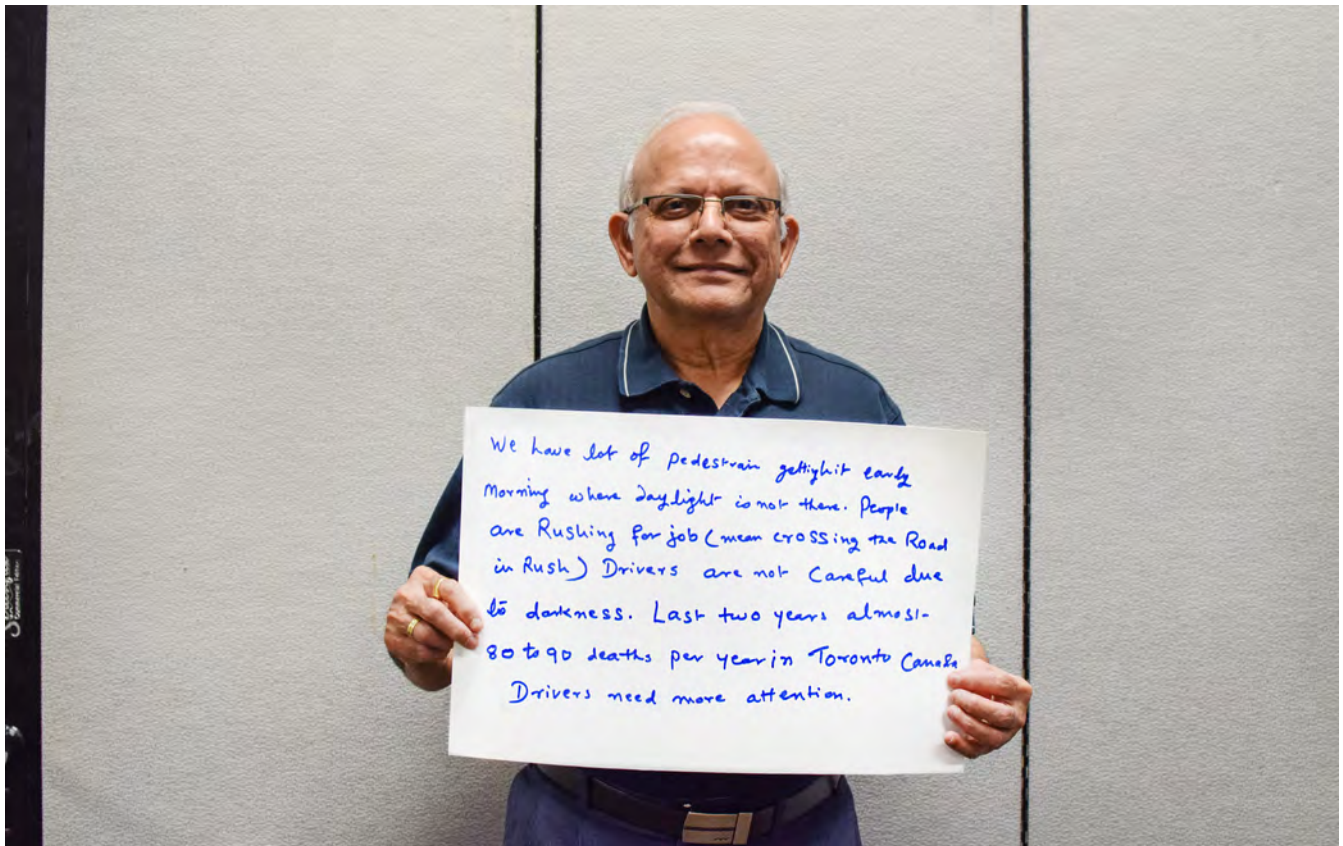 We have lot of pedestrain gettighit early
Morning where daylight is not there. People
are Rushing for job (mean crossing the Road
in Rush) Drivers are not Careful due
to darkness. Last two years almost
80 to 90 deaths per year in Toronto Canada
Drivers need more attention.